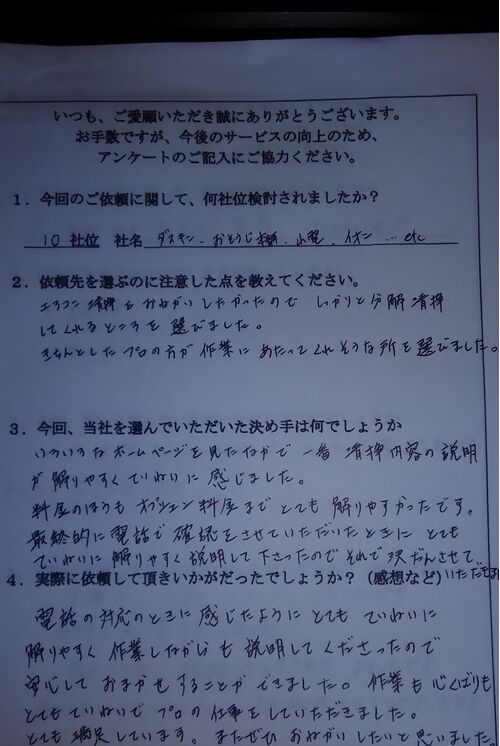 いつも、ご愛顧いただき誠にありがとうございます。
お手数ですが、今後のサービスの向上のため、
アンケートのご記入にご協力ください。
1．今回のご依頼に関して、何社位検討されましたか？
10 社位 社名 ダスキン、おそうじ本舗、山電、イオン … etc
2．依頼先を選ぶのに注意した点を教えてください。
エアコン清掃をおねがいしたかったので しっかりと分解清掃
してくれるところを選びました。
きちんとしたプロの方が作業にあたってくれそうな所を選びました。
3．今回、当社を選んでいただいた決め手は何でしょうか
いろいろなホームページを見たなかで一番 清掃内容の説明
が解りやすくていねいに感じました。
料金のほうもオプション料金までとても解りやすかったです。
最終的に電話で確認をさせていただいたときにとても
ていねいに解りやすく説明して下さったのでそれで決だんさせて、
いただきま
4．実際に依頼して頂きいかがだったでしょうか？（感想など）
電話の対応のときに感じたようにとてもていねいに
解りやすく作業しながらも説明してくださったので
安心しておまかせすることができました。作業も心くばりも
とてもていねいでプロの仕事をしていただきました。
とても満足しています。またぜひおねがいしたいと思いました